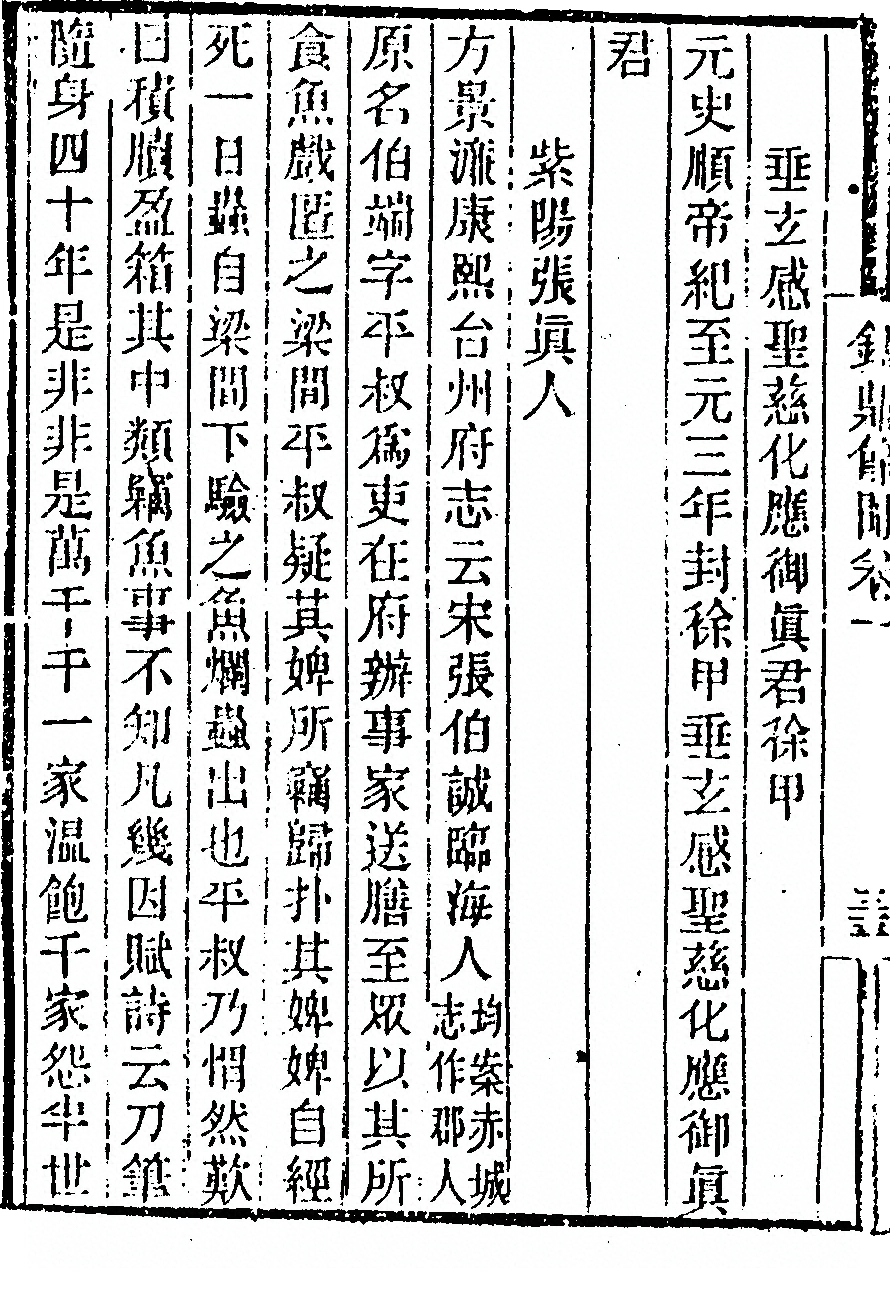 垂玄感聖慈化應御眞君徐甲
元史順帝紀至元三年封徐甲垂玄感聖慈化應御眞
君
紫陽張眞人
方景濂康熙台州府志云宋張伯誠臨海人均案赤城志作郡人
原名伯端字平叔爲吏在府辦事家送膳至眾以其所
食魚戲匿之梁間平叔疑其婢所竊歸扑其婢婢自經
死一日蟲自梁間下驗之魚爛蟲出也平叔乃悁然歎
曰積牘盈箱其中類竊魚事不知凡幾因賦詩云刀筆
隨身四十年是非非是萬千千一家温飽千家怨半世